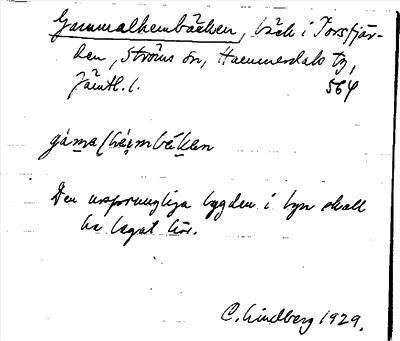 Gammalhembäcken, bäck i Torsfjär-
den, Ströms sn, Hammerdals tg,
Jämtl. l. 564
gáma(hæimbäkan
Den ursprungliga bygden i byn skall
ha legat här.
C. Lindberg 1929.